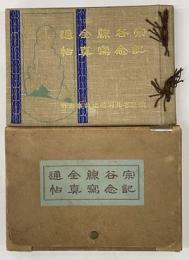 宗谷線全通
記念寫真帖
宗谷線全通
記念寫真帖